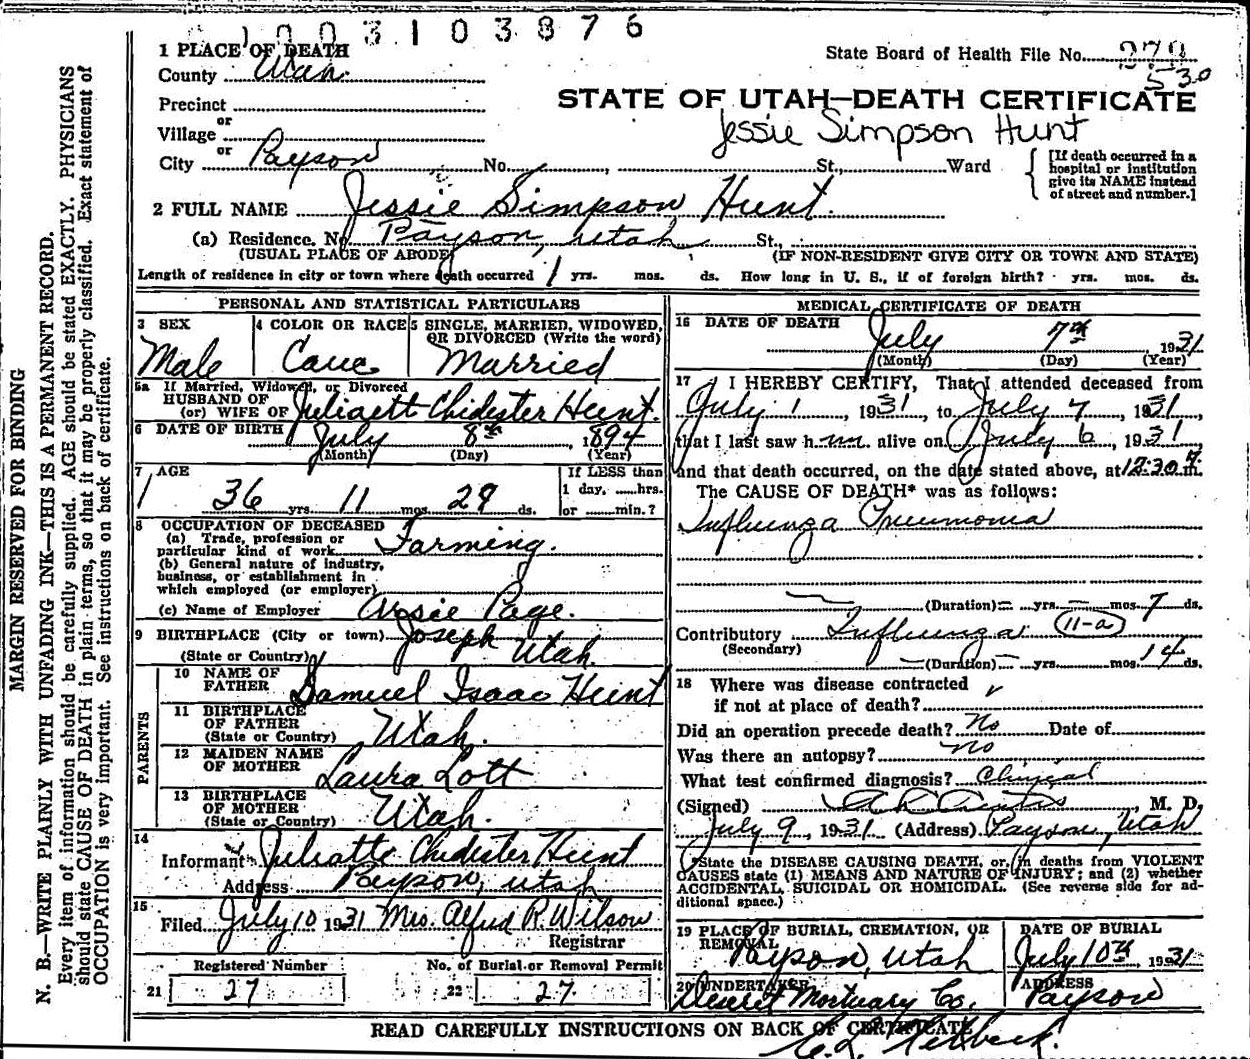 1003103876
1 PLACE OF DEATH
County Utah
State Board of Health File No. 279
530
Precinct
or
STATE OF UTAH—DEATH CERTIFICATE
Village
Jessie Simpson Hunt
or
City Payson No. , St., Ward
[If death occurred in a hospital or institution give its NAME instead of street and number.]
2 FULL NAME Jessie Simpson Hunt.
(a) Residence. No. Payson, Utah St.,
(USUAL PLACE OF ABODE) (IF NON-RESIDENT GIVE CITY OR TOWN AND STATE)
Length of residence in city or town where death occurred 1 yrs. mos. ds. How long in U. S., if of foreign birth? yrs. mos. ds.
PERSONAL AND STATISTICAL PARTICULARS
3 SEX
Male
4 COLOR OR RACE
Cauc
5 SINGLE, MARRIED, WIDOWED,
OR DIVORCED (Write the word)
Married
5a If Married, Widowed, or Divorced
HUSBAND OF
(or) WIFE OF Juliaett Chidester Hunt.
6 DATE OF BIRTH July 8th, 1894
(Month) (Day) (Year)
7 AGE
36 yrs. 11 mos. 29 ds.
If LESS than
1 day, hrs.
or min.?
8 OCCUPATION OF DECEASED
(a) Trade, profession or
particular kind of work Farming.
(b) General nature of industry,
business, or establishment in
which employed (or employer)
(c) Name of Employer Page.
9 BIRTHPLACE (City or town) Joseph
(State or Country) Utah.
PARENTS
10 NAME OF
FATHER Samuel Isaac Hunt
11 BIRTHPLACE
OF FATHER
(State or Country) Utah.
12 MAIDEN NAME
OF MOTHER Laura Lott
13 BIRTHPLACE
OF MOTHER
(State or Country) Utah.
14
Informant Juliatte Chidester Hunt
Address Payson, Utah
15
Filed July 10 1931 Mrs. Alfred R. Wilson
Registrar
Registered Number No. of Burial or Removal Permit
21 27 22 27
MEDICAL CERTIFICATE OF DEATH
16 DATE OF DEATH
July 7th, 1931
(Month) (Day) (Year)
17 I HEREBY CERTIFY, That I attended deceased from
July 1, 1931, to July 7, 1931,
that I last saw him alive on July 6, 1931,
and that death occurred, on the date stated above, at 12:30 m.
The CAUSE OF DEATH* was as follows:
Influenza Pneumonia
(Duration) — yrs. — mos. 7 ds.
Contributory Influenza 11-a
(Secondary)
(Duration) — yrs. mos. 14 ds.
18 Where was disease contracted
if not at place of death?
Did an operation precede death? No Date of
Was there an autopsy? no
What test confirmed diagnosis? Clinical
(Signed) , M. D.
July 9, 1931 (Address) Payson, Utah
*State the DISEASE CAUSING DEATH, or, in deaths from VIOLENT
CAUSES state (1) MEANS AND NATURE OF INJURY; and (2) whether
ACCIDENTAL, SUICIDAL OR HOMICIDAL. (See reverse side for ad-
ditional space.)
19 PLACE OF BURIAL, CREMATION, OR
REMOVAL
Payson, Utah
DATE OF BURIAL
July 10th, 1931
20 UNDERTAKER
Deseret Mortuary Co.
ADDRESS
Payson
READ CAREFULLY INSTRUCTIONS ON BACK OF CERTIFICATE
MARGIN RESERVED FOR BINDING
N. B.—WRITE PLAINLY WITH UNFADING INK—THIS IS A PERMANENT RECORD.
Every item of information should be carefully supplied. AGE should be stated EXACTLY. PHYSICIANS
should state CAUSE OF DEATH in plain terms, so that it may be properly classified. Exact statement of
OCCUPATION is very important. See instructions on back of certificate.